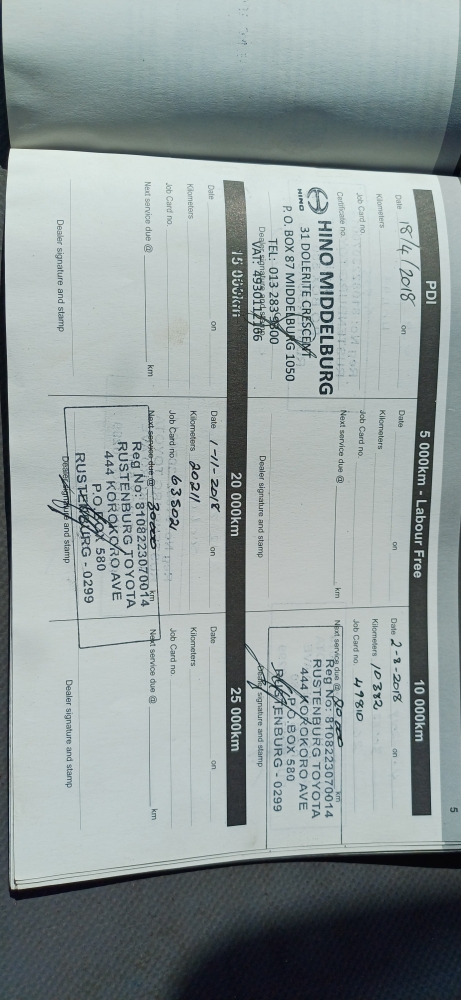 5
PDI
Date 18/4/2018 on
Kilometers
Job Card no.
Certificate no.
HINO
HINO MIDDELBURG
31 DOLERITE CRESCENT
P.O. BOX 87 MIDDELBURG 1050
TEL: 013 283 9300
Dealer signature and stamp
5 000km - Labour Free
Date on
Kilometers
Job Card no.
Next service due @ km
Dealer signature and stamp
10 000km
Date 2-8-2018 on
Kilometers 10382
Job Card no. 49810
Next service due @ km
Reg No: 8108223070014
RUSTENBURG TOYOTA
444 KOROKORO AVE
P.O. BOX 580
RUSTENBURG - 0299
Dealer signature and stamp
15 000km
Date on
Kilometers
Job Card no.
Next service due @ km
Dealer signature and stamp
20 000km
Date 1-11-2018 on
Kilometers 20211
Job Card no. 63502
Next service due @ 30000 km
Reg No: 8108223070014
RUSTENBURG TOYOTA
444 KOROKORO AVE
P.O. BOX 580
RUSTENBURG - 0299
Dealer signature and stamp
25 000km
Date on
Kilometers
Job Card no.
Next service due @ km
Dealer signature and stamp